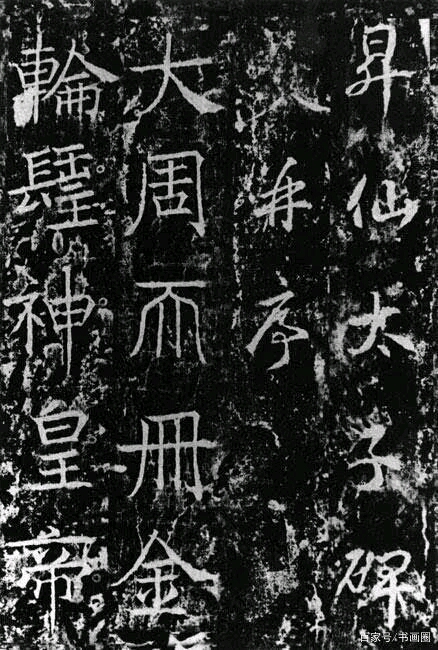 昇仙太子碑
并序
大周𠀑冊金
輪𨲢神皇帝
百家号/书画圈